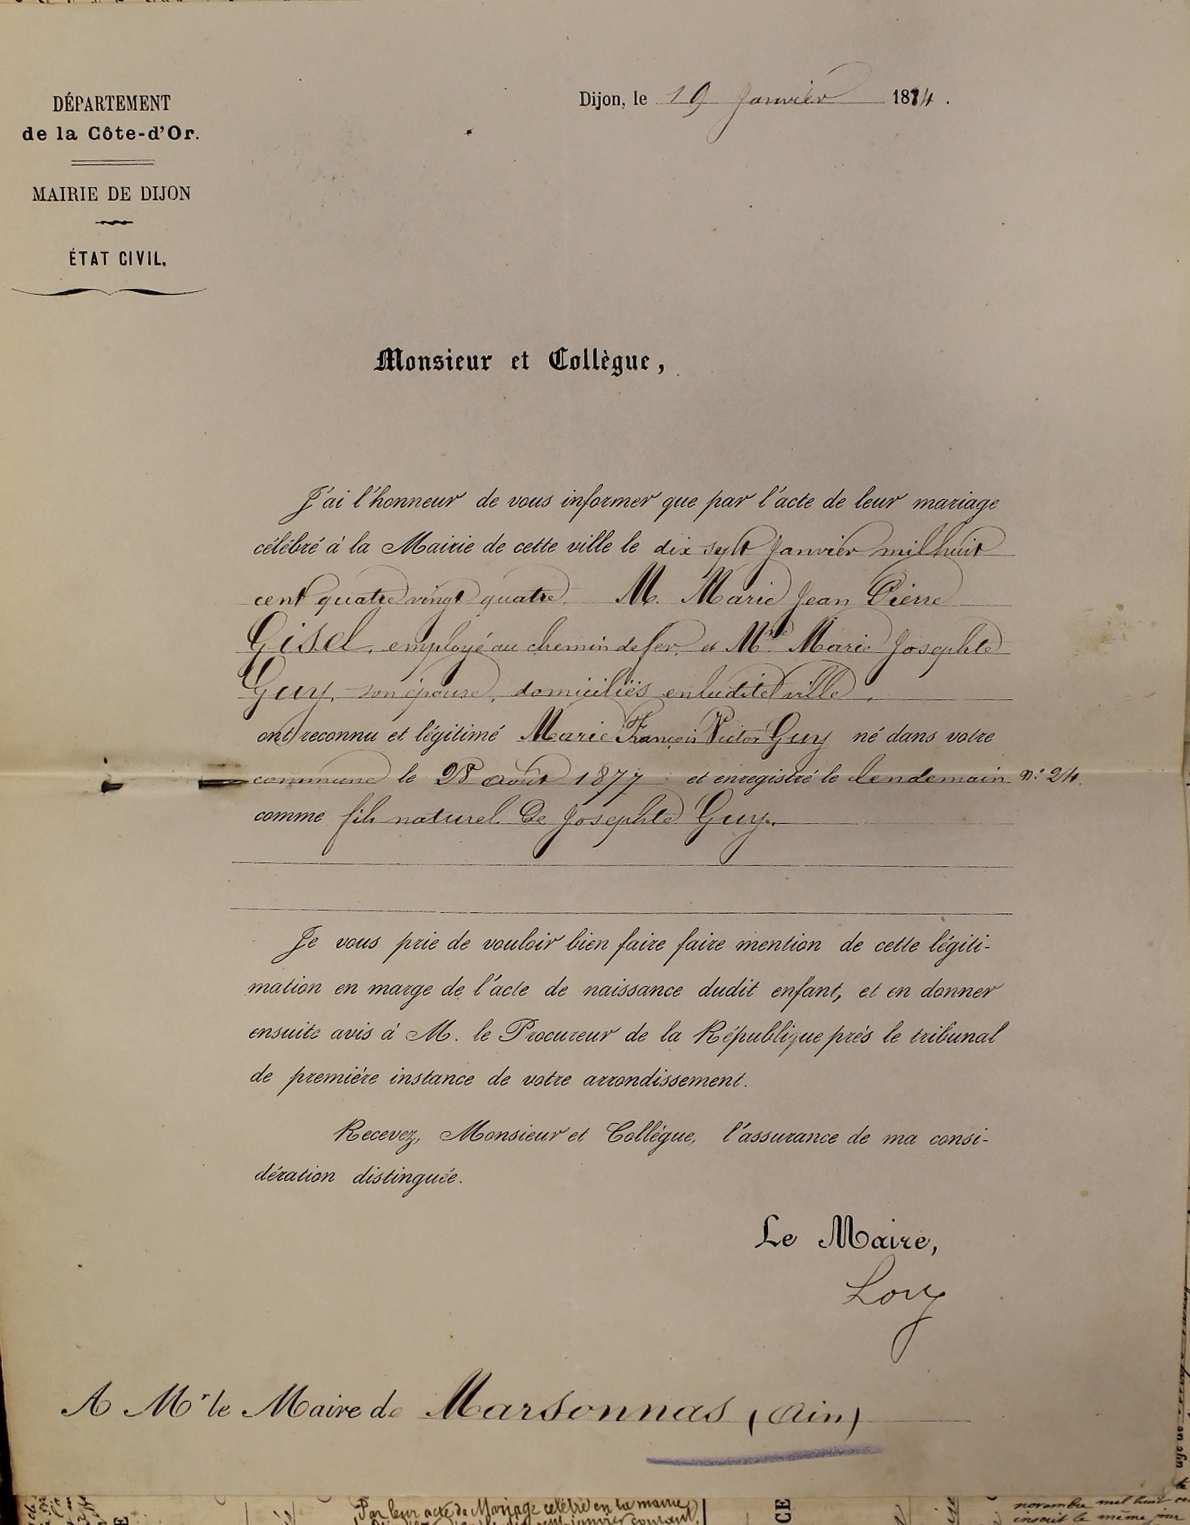 DÉPARTEMENT
de la Côte-d'Or.
MAIRIE DE DIJON
ÉTAT CIVIL.
Dijon, le 19 Janvier 1884.
Monsieur et Collègue,
J'ai l'honneur de vous informer que par l'acte de leur mariage
célébré à la Mairie de cette ville le dix sept Janvier mil huit
cent quatre vingt quatre. M. Marie Jean Pierre
Gisel, employé au chemin de fer, et Mme Marie Josephte
Guy, son épouse, domiciliés en ladite ville,
ont reconnu et légitimé Marie François Victor Guy né dans votre
commune le 28 août 1877 et enregistré le lendemain n° 24.
comme fils naturel de Josephte Guy.
Je vous prie de vouloir bien faire faire mention de cette légiti-
mation en marge de l'acte de naissance dudit enfant, et en donner
ensuite avis à M. le Procureur de la République près le tribunal
de première instance de votre arrondissement.
Recevez, Monsieur et Collègue, l'assurance de ma consi-
dération distinguée.
Le Maire,
A Mr le Maire de Marsonnas (Ain)
Par leur acte de Mariage célébré en la mairie
CE
novembre mil huit
inscrit le même jour